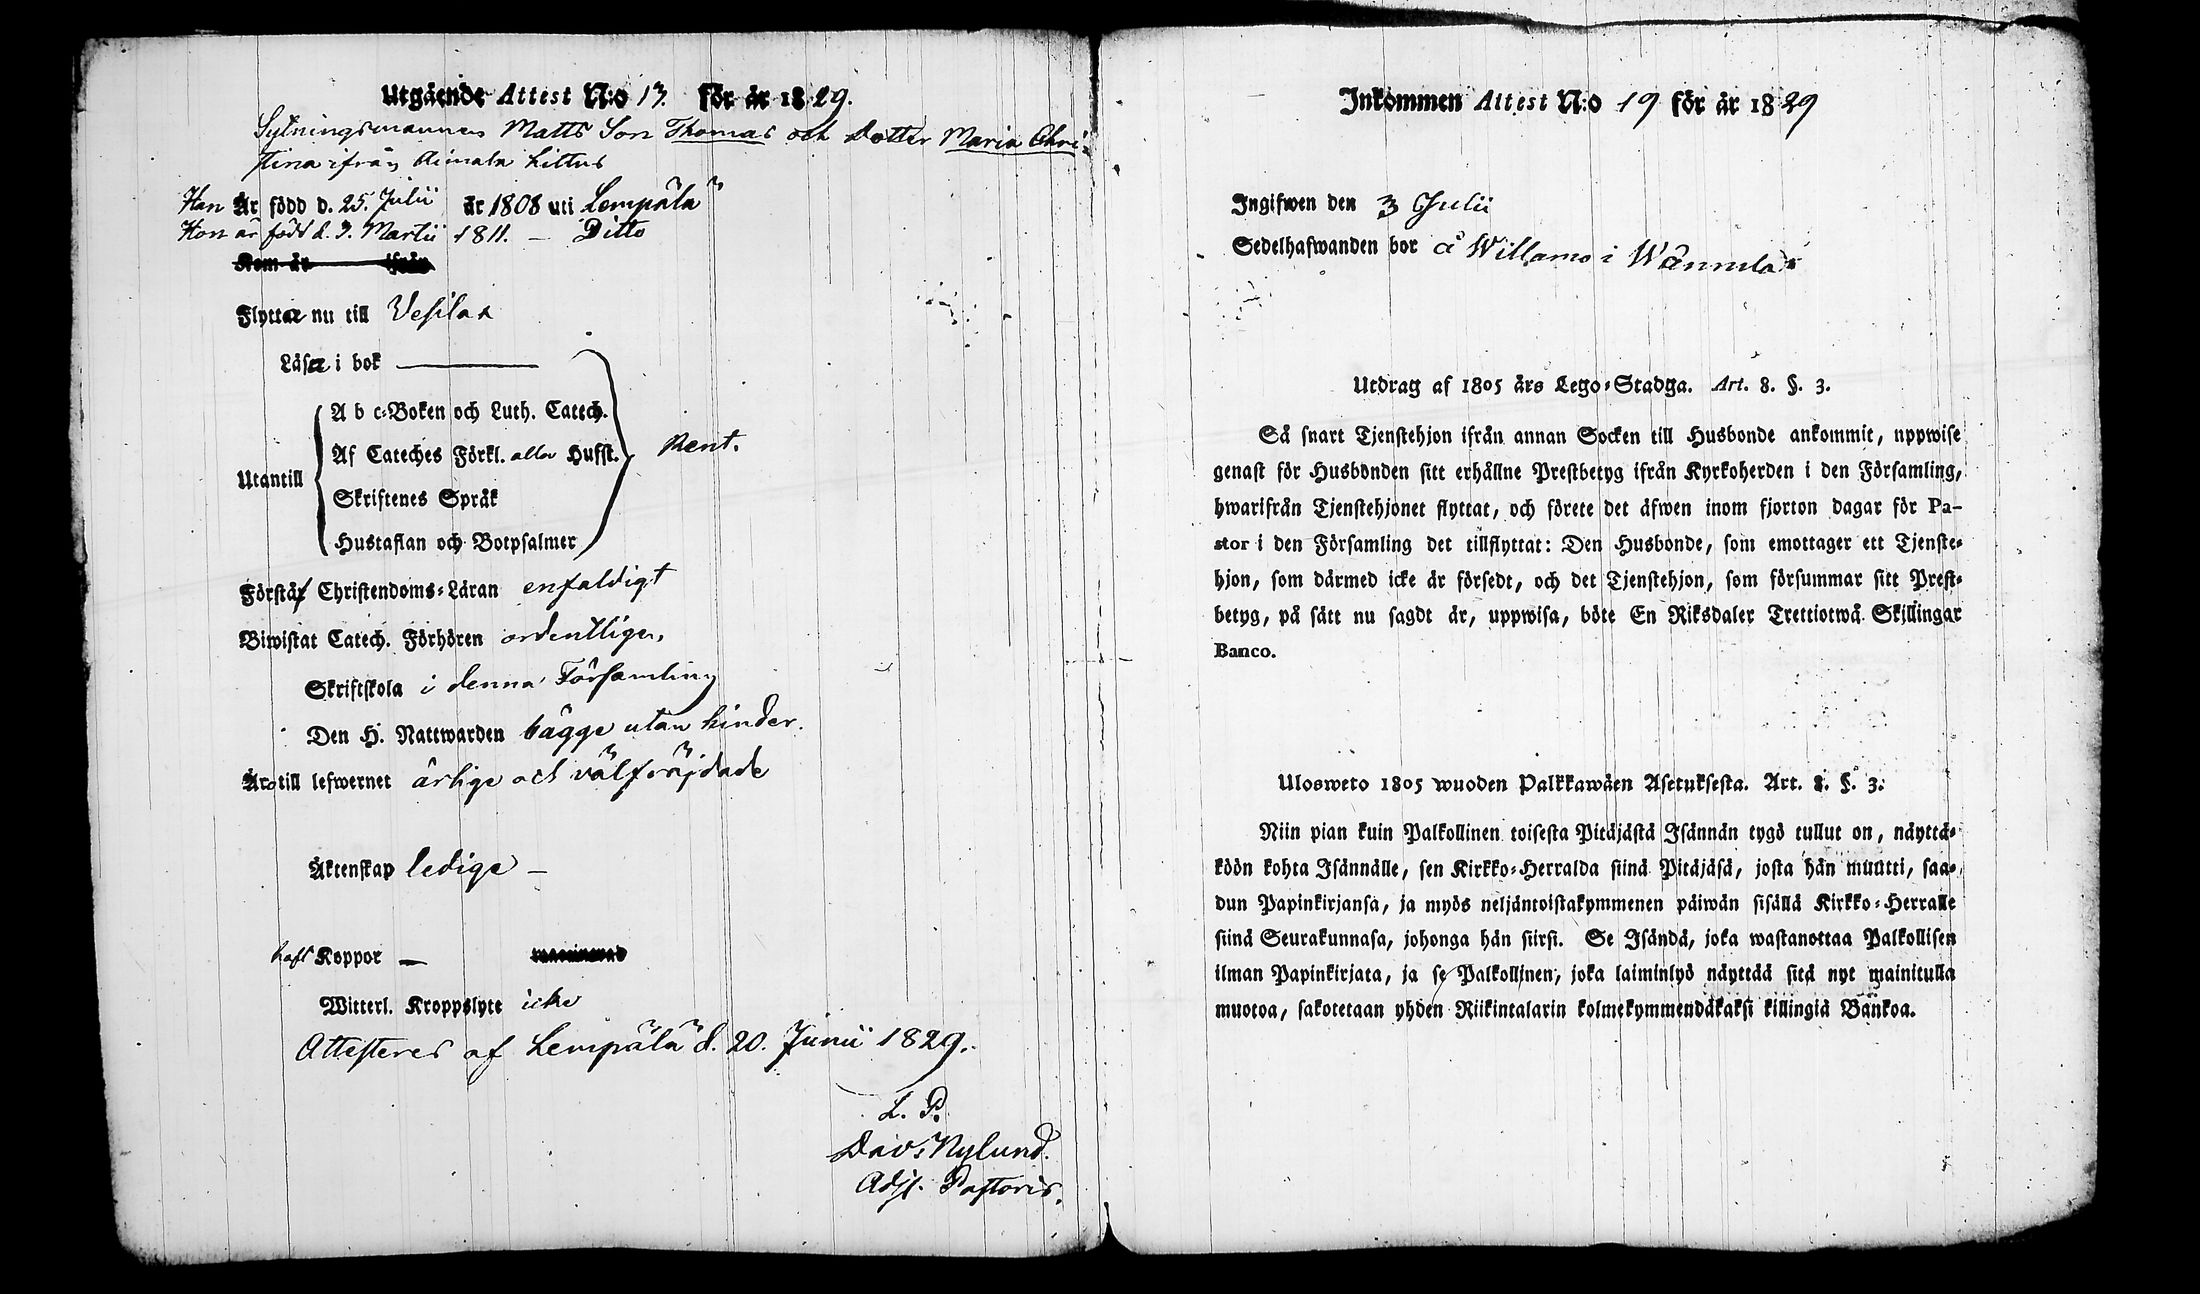 Utgående Attest N:o 13. för år 1829.
Sytningsmannens Matts Son Thomas och Dotter Maria Chri-
stina ifrån Aimala Kittus
Han Är född d. 25. Julii år 1808 uti Lempälä
Hon är född d. 9. Martii 1811. — Ditto
Kom år ifrån
Flyttar nu till Vesilax
Läser i bok
A b c-Boken och Luth. Catech.
Af Cateches Förkl. eller Husst. Rent.
Utantill
Skriftenes Språk
Hustaflan och Botpsalmer
Förstå Christendoms-Läran enfaldigt
Biwistat Catech. Förhören ordentligen,
Skriftskola i denna Församling
Den H. Nattwarden bägge utan hinder.
Äro till lefwernet ärlige och välfräjdade
Äktenskap ledige —
haft Koppor —
Witterl. Kroppslyte icke
Attesteres af Lempälä d. 20. Junii 1829.
L. P.
Dav: Nylund.
Adj. Pastoris.
Inkommen Attest N:o 19 för år 1829
Ingifwen den 3 Julii
Sedelhafwanden bor å Willamo i Wännilä
Utdrag af 1805 års Lego-Stadga. Art. 8. §. 3.
Så snart Tjenstehjon ifrån annan Socken till Husbonde ankommit, uppwise
genast för Husbonden sitt erhållne Prestbetyg ifrån Kyrkoherden i den Församling,
hwarifrån Tjenstehjonet flyttat, och förete det äfwen inom fjorton dagar för Pa-
stor i den Församling det tillflyttat: Den Husbonde, som emottager ett Tjenste-
hjon, som därmed icke är försedt, och det Tjenstehjon, som försummar sitt Prest-
betyg, på sätt nu sagdt är, uppwisa, böte En Riksdaler Trettiotwå Skillingar
Banco.
Ulosweto 1805 wuoden Palkkawäen Asetuksesta. Art. 8. §. 3.
Niin pian kuin Palkollinen toisesta Pitäjästä Isännän tygö tullut on, näyttä-
köön kohta Isännälle, sen Kirkko-Herralda siinä Pitäjäsä, josta hän muutti, saa-
dun Papinkirjansa, ja myös neljäntoistakymmenen päiwän sisällä Kirkko-Herralle
siinä Seurakunnasa, johonga hän siirsi. Se Isändä, joka wastanottaa Palkollisen
ilman Papinkirjata, ja se Palkollinen, joka laiminlyö näyttää sitä nyt mainitulla
muotoa, sakotetaan yhden Riikintalarin kolmekymmendäkaksi killingiä Bankoa.